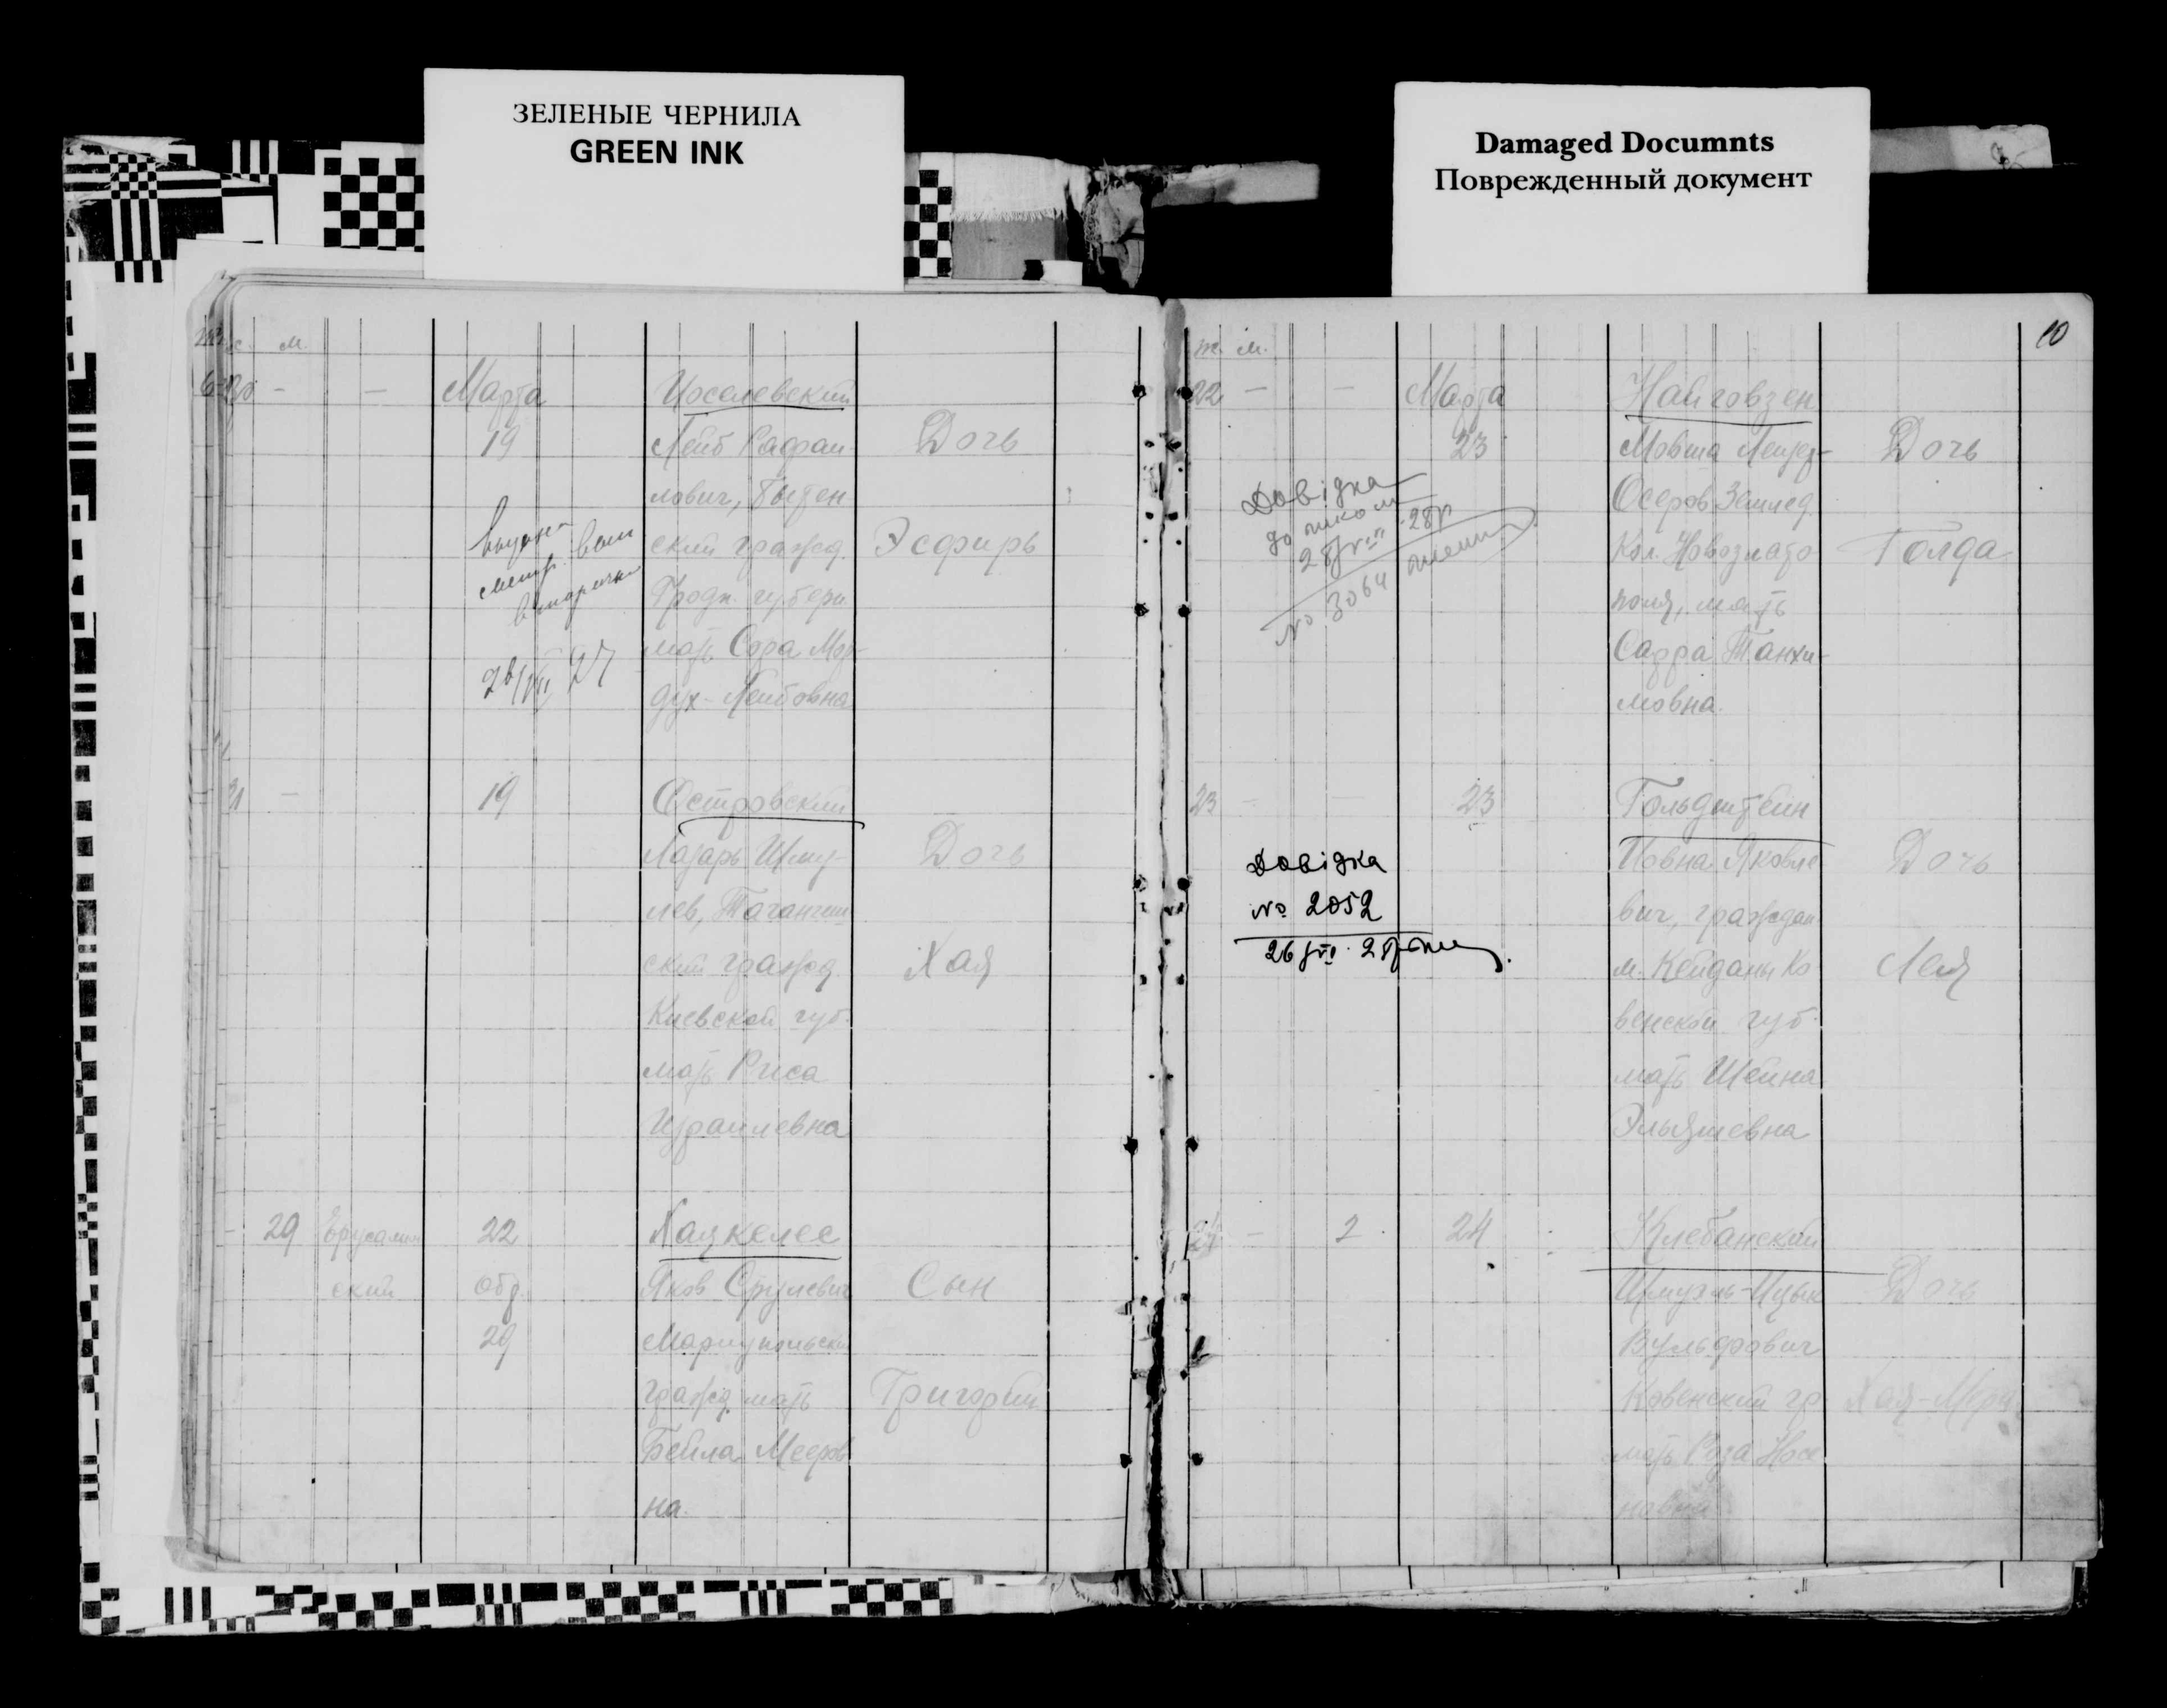 ЗЕЛЕНЫЕ ЧЕРНИЛА
GREEN INK
Damaged Documnts
Поврежденный документ
м.
Марта
19
Иоселевский
Лейб Рафаи-
лович,
ский гражд.
Гродн. губерн.
мать Сора Мор-
дух-Лейбовна
Дочь
Эсфирь
19
Островский
Лазарь Шму-
лев, Таганчин
ский гражд
Киевской губ.
мать Риса
Израилевна
Дочь
Хая
29
Ерусалим
ский
22
Обр.
29
Хазкелес
Яков Срулевич
Мариупольски
гражд. мать
Бейла Мееров
на.
Сын
Григорий
10
ж. м.
22
Марта
23
Найговзен
Мовша Лейзер-
Осеров Землед.
Кол. Новозлато
поля, мать
Сарра Танхи-
мовна.
Дочь
Голда
Довідка
до школи
№ 3064
23
23
Гольдштейн
Иовна Яковле
вич, граждан.
м. Кейданы Ко
венской губ.
мать Шейна
Эльяшевна
Дочь
Лея
Довідка
№ 2052
2
24
Клебанский
Шмуэль-Ицык
Вульфович
Ковенский гр.
мать Роза Носе
новна
Дочь
Хая-Мера